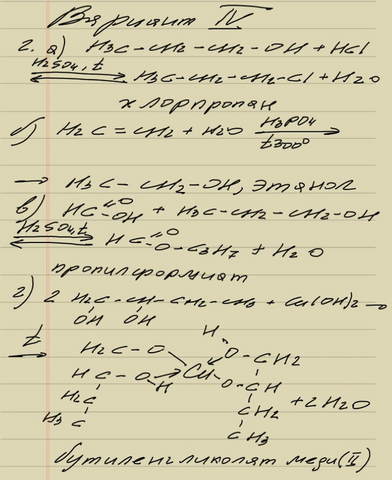 Вариант IV
2. а) H₃C-CH₂-CH₂-OH + HCl
H₂SO₄, t ⇌ H₃C-CH₂-CH₂-Cl + H₂O
хлорпропан
б) H₂C=CH₂ + H₂O H₃PO₄ t300° →
→ H₃C-CH₂-OH, этанол
в) HC=O-OH + H₃C-CH₂-CH₂-OH
H₂SO₄, t ⇌ HC=O-O-C₃H₇ + H₂O
пропилформиат
г) 2 H₂C-CH-CH₂-CH₃ + Cu(OH)₂ →
OH OH
t → H
H₂C-O O-CH₂
HC-O Cu O-CH + 2H₂O
H
H₂C CH₂
H₃C CH₃
бутиленгликолят меди(II)